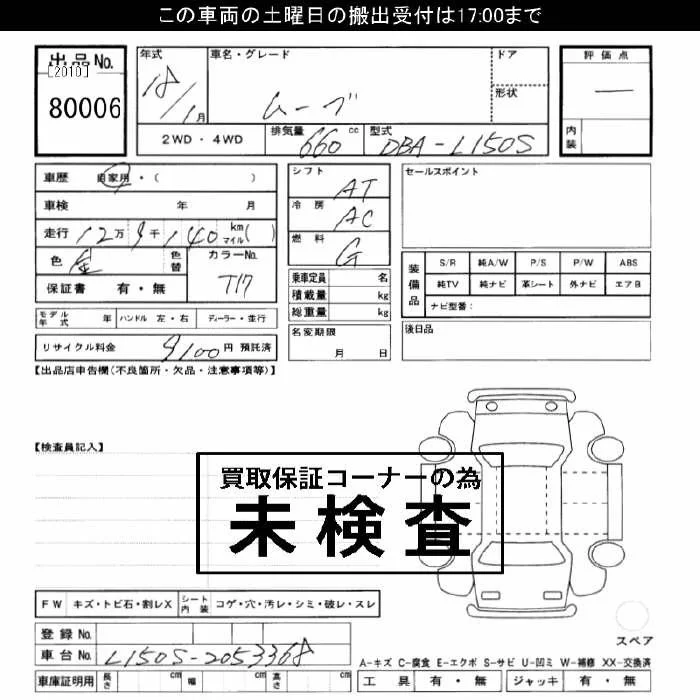 この車両の土曜日の搬出受付は17:00まで
出品No.
[2010]
80006
年式
18/1月
車名・グレード
ムーブ
ドア
形状
評価点
―
内装
2WD・4WD
排気量 660 cc
型式 DBA-L150S
車歴 自家用・( )
車検 年 月
走行 12万 9千 140 km マイル( )
色 金 色替
カラーNo. T17
保証書 有・無
シフト AT
冷房 AC
燃料 G
乗車定員 名
積載量 kg
総重量 kg
名変期限
月 日
セールスポイント
装備品
S/R 純A/W P/S P/W ABS
純TV 純ナビ 革シート 外ナビ エアB
ナビ型番:
後日品
モデル年式 年 ハンドル 左・右 ディーラー・並行
リサイクル料金 9100円 預託済
【出品店申告欄(不良箇所・欠品・注意事項等)】
【検査員記入】
買取保証コーナーの為
未検査
FW キズ・トビ石・割レX シート内装 コゲ・穴・汚レ・シミ・破レ・スレ
登録No.
車台No. L150S-2053368
車庫証明用 長さ cm 幅 cm 高さ cm
スペア
A-キズ C-腐食 E-エクボ S-サビ U-凹ミ W-補修 XX-交換済
工具 有・無 ジャッキ 有・無